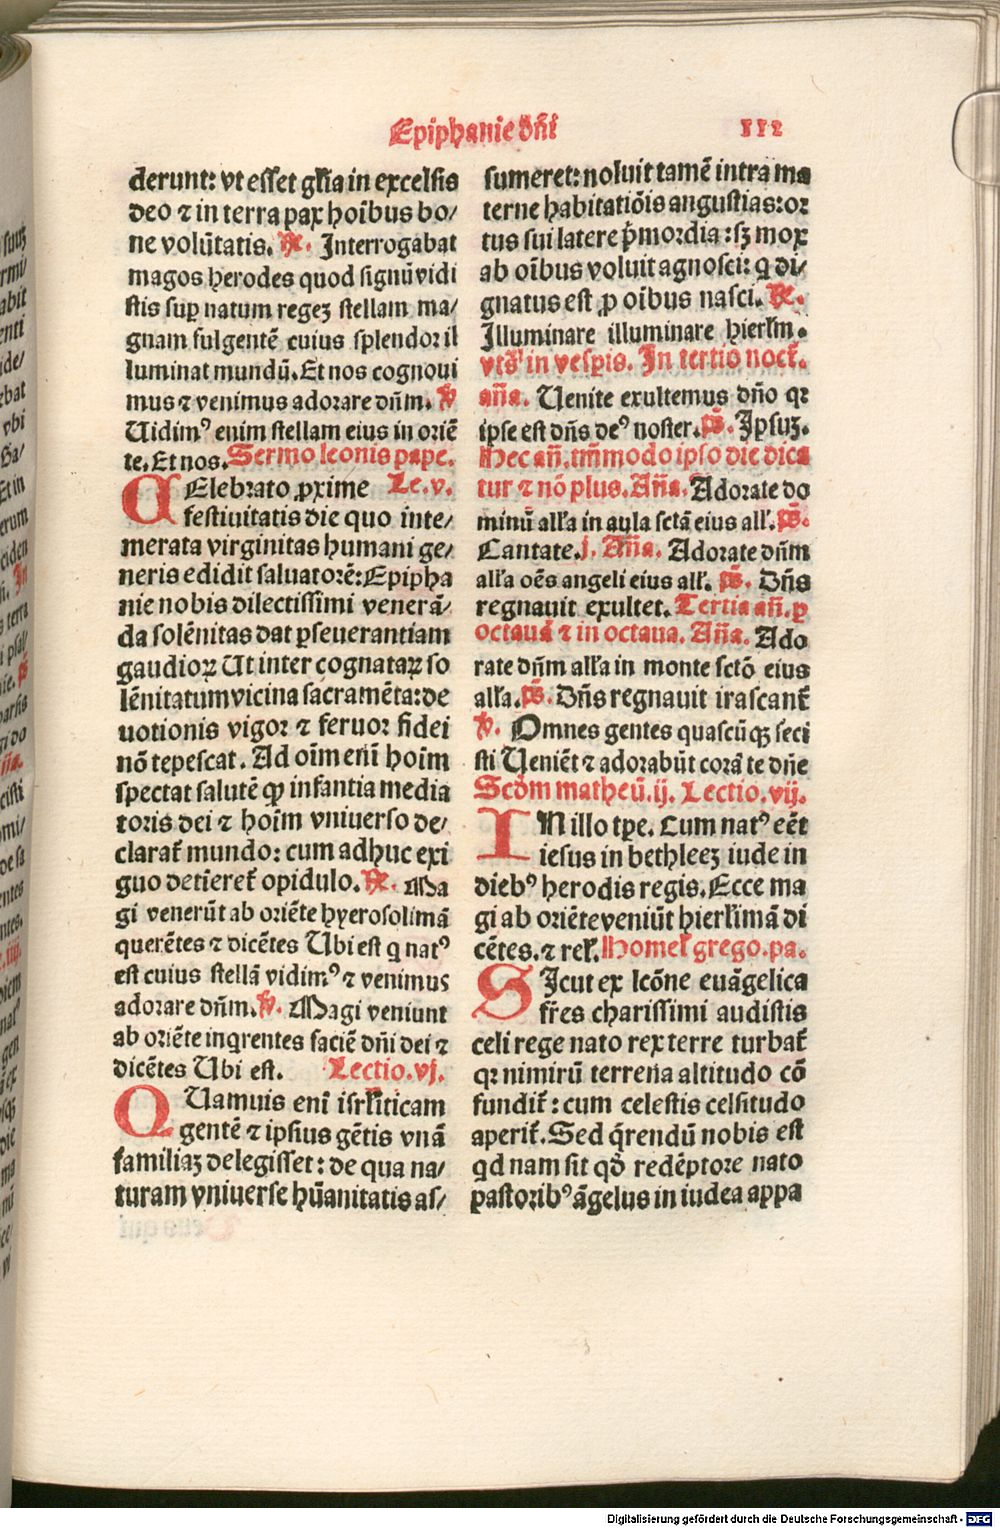 Epiphanie dñi
112
derunt: vt esset gl'ia in excelsis
deo ⁊ in terra pax hoībus bo/
ne volūtatis. ℟. Interrogabat
magos herodes quod signū vidi
stis sup̱ natum regeꝫ stellam ma/
gnam fulgentē cuius splendor il
luminat mundū. Et nos cognoui
mus ⁊ venimus adorare dñm. ℣
Uidimꝰ enim stellam eius in oriē
te. Et nos. Sermo leonis pape.
CElebrato ꝓxime Le.v.
festiuitatis die quo inte/
merata virginitas humani ge/
neris edidit saluatorē: Epipha
nie nobis dilectissimi venerā/
da solēnitas dat ꝑseuerantiam
gaudioꝝ Ut inter cognataꝝ so
lēnitatum vicina sacramēta: de
uotionis vigor ⁊ feruor fidei
nō tepescat. Ad oīm eni hoīm
spectat salutē ꝙ infantia media
toris dei ⁊ hoīm vniuerso de/
clarat̄ mundo: cum adhuc exi
guo detīeret̄ opidulo. ℟. Ma
gi venerūt ab oriēte hyerosolimā
querētes ⁊ dicētes Ubi est q natꝰ
est cuius stellā vidimꝰ ⁊ venimus
adorare dñm. ℣. Magi veniunt
ab oriēte inqrentes faciē dñi dei ⁊
dicētes Ubi est. Lectio.vj.
QUamuis eni isrl'iticam
gentē ⁊ ipsius gētis vnā
familiaꝫ delegisset: de qua na/
turam vniuerse hūanitatis as/
sumeret: noluit tamē intra ma
terne habitatiōis angustias: or
tus sui latere p̄mordia: sꝫ mox
ab oībus voluit agnosci: q di/
gnatus est ꝓ oībus nasci. ℟.
Illuminare illuminare hierl'm.
vts' in vesp̱is. In tertio noct̄.
añā. Uenite exultemus dño qꝛ
ipse est dñs deꝰ noster. p̄s. Ipsuꝫ.
Hec añ. tm̄modo ipso die dica
tur ⁊ nō plus. Añā. Adorate do
minū all'a in aula sctā eius all'. p̄s.
Cantate. j. Añā. Adorate dñm
all'a oēs angeli eius all'. p̄s. Dñs
regnauit exultet. Tertia añ. ꝑ
octauā ⁊ in octaua. Añā. Ado
rate dñm all'a in monte sctō eius
all'a. p̄s. Dñs regnauit irascant̄
℣. Omnes gentes quascūqꝫ feci
sti Ueniēt ⁊ adorabūt corā te dñe
Scd̄m matheū.ij. Lectio.vij.
IN illo tp̱e. Cum natꝰ eēt
iesus in bethleeꝫ iude in
diebꝰ herodis regis. Ecce ma
gi ab oriēte veniūt hierl'imā di
cētes. ⁊ rel'. Homel' grego. pa.
SIcut ex lcōne euāgelica
fr̄es charissimi audistis
celi rege nato rex terre turbat̄
qꝛ nimirū terrena altitudo cō
fundit̄: cum celestis celsitudo
aperit̄. Sed q̄rendū nobis est
qd nam sit qd̄ redēptore nato
pastoribꝰ āgelus in iudea appa
Digitalisierung gefördert durch die Deutsche Forschungsgemeinschaft - DFG